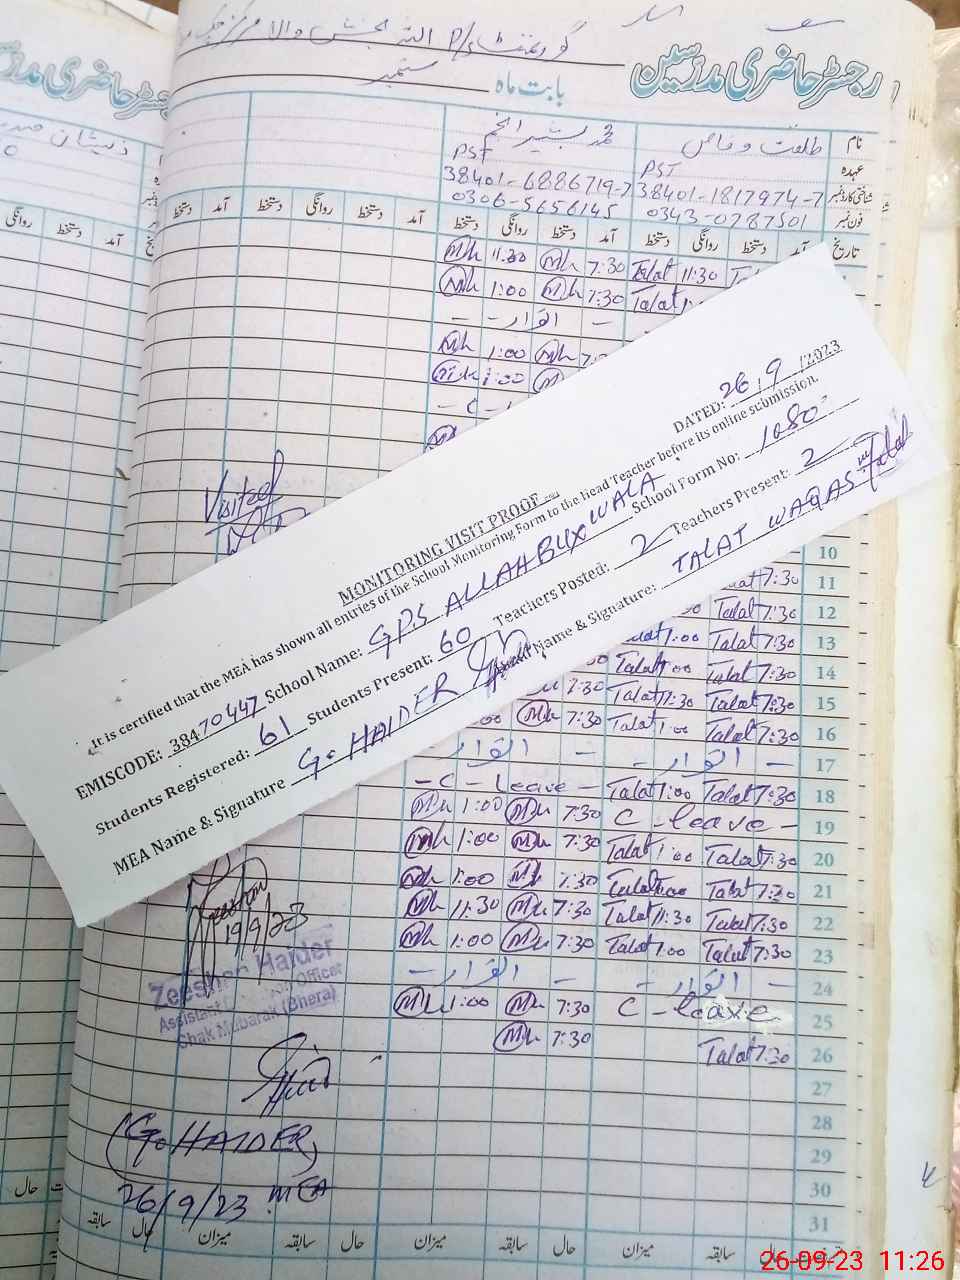 گورنمنٹ P/s اللہ بخش والا مرکز چک
رجسٹر حاضری مدرسین
بابت ماہ ستمبر
نام طلعت وقاص محمد بشیر انجم
عہدہ PST PST
شناختی کارڈ نمبر 38401-1817974-7 38401-6886719-7
فون نمبر 0343-0787501 0306-5656145
تاریخ آمد دستخط روانگی دستخط آمد دستخط روانگی دستخط آمد دستخط روانگی دستخط آمد دستخط
Mh 11:30 Mh 7:30 Talat 11:30
Mh 1:00 Mh 7:30 Talat
- اتوار -
Mh 1:00 Mh
1:00
- C -
Visited
MONITORING VISIT PROOF
DATED: 26/9/2023
It is certified that the MEA has shown all entries of the School Monitoring Form to the Head Teacher before its online submission.
EMISCODE: 38470447 School Name: GPS ALLAH BUX WALA School Form No: 1080
Students Registered: 61 Students Present: 60 Teachers Posted: 2 Teachers Present: 2
MEA Name & Signature G. HAIDER Name & Signature: TALAT WAQAS Talat
10
7:30 11
Talat 7:30 12
1:00 Talat 7:30 13
Talat 1:00 Talat 7:30 14
7:30 Talat 11:30 Talat 7:30 15
Mh 7:30 Talat 1:00 Talat 7:30 16
- اتوار - - اتوار - 17
- C - Leave - Talat 1:00 Talat 7:30 18
Mh 1:00 Mh 7:30 C - leave - 19
Mh 1:00 Mh 7:30 Talat 1:00 Talat 7:30 20
Mh 1:00 Mh 7:30 Talat 1:00 Talat 7:30 21
Mh 11:30 Mh 7:30 Talat 11:30 Talat 7:30 22
Mh 1:00 Mh 7:30 Talat 1:00 Talat 7:30 23
- اتوار - - اتوار - 24
Mh 1:00 Mh 7:30 C - leave 25
Mh 7:30 Talat 7:30 26
27
28
29
30
31
19/9/23
Zeeshan Haider
Assistant Education Officer
Chak Mubarak (Bhera)
(G. HAIDER)
MEA
26/9/23
میزان سابقہ حال میزان سابقہ حال میزان سابقہ حال
26-09-23 11:26